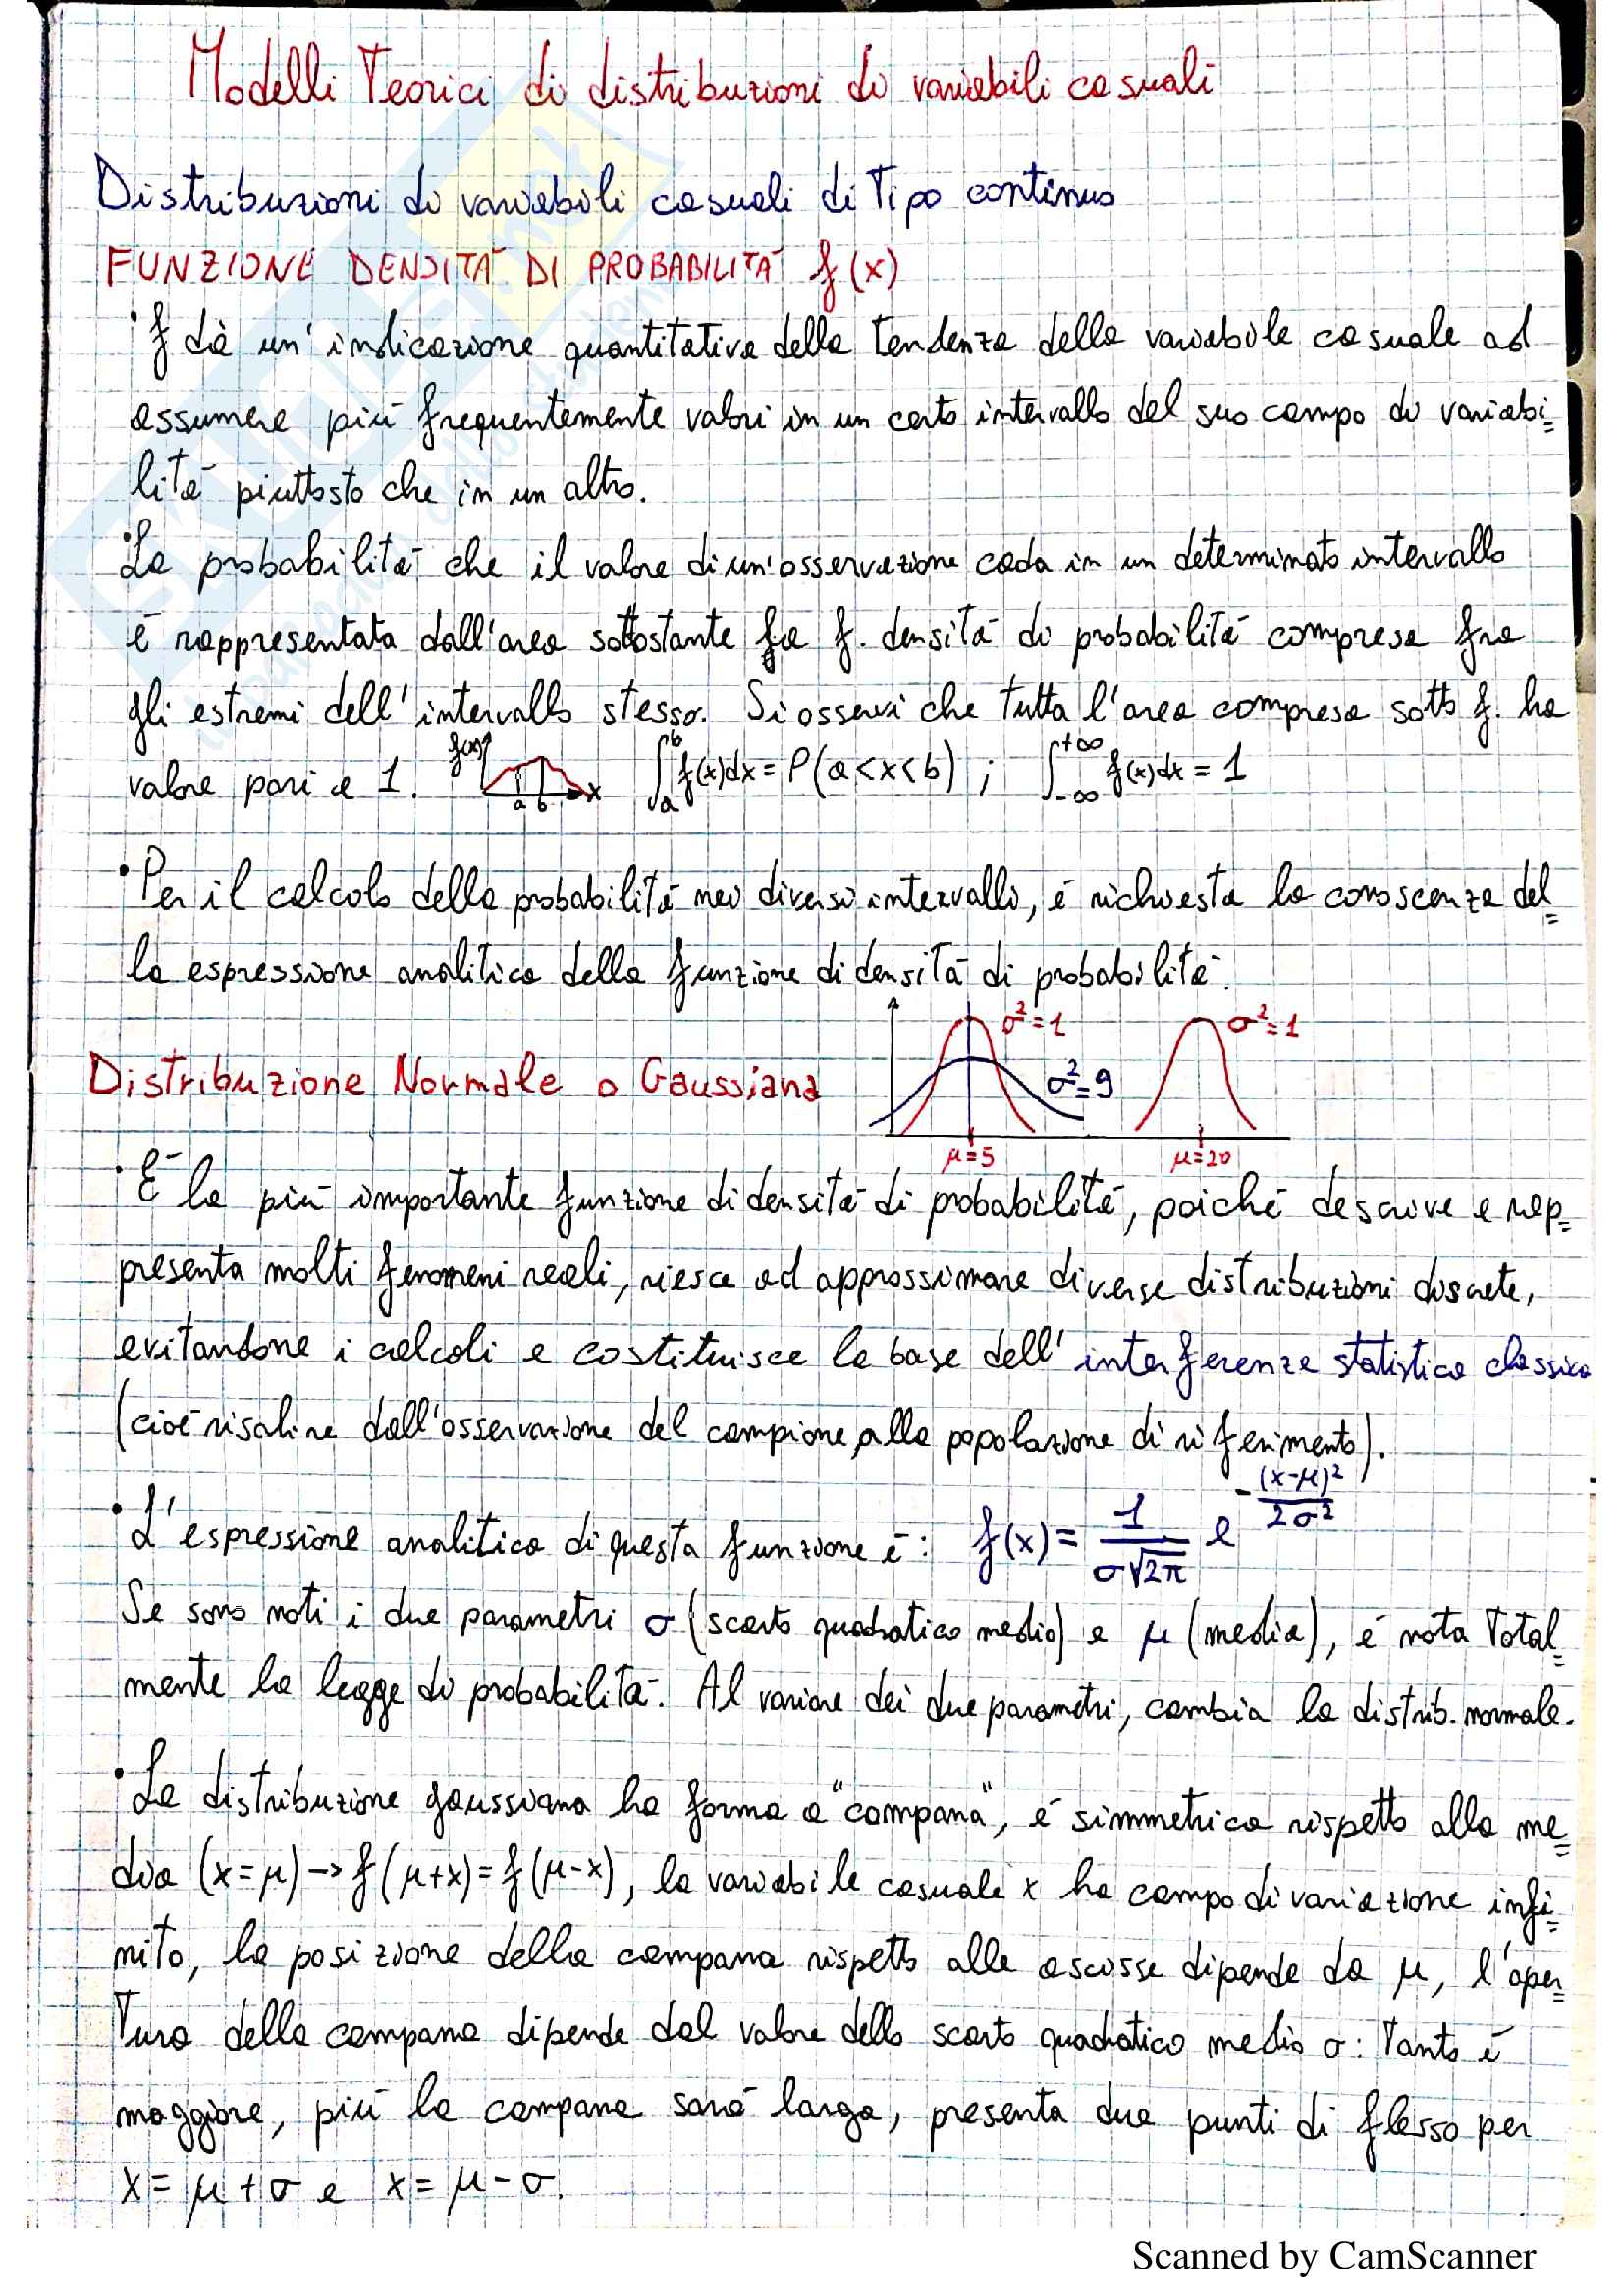 Modelli Teorici di distribuzioni di variabili casuali
Distribuzioni di variabili casuali di Tipo continuo
FUNZIONE DENSITÀ DI PROBABILITÀ f(x)
• f dà un'indicazione quantitativa della tendenza della variabile casuale ad
assumere più frequentemente valori in un certo intervallo del suo campo di variabi=
lità piuttosto che in un altro.
• La probabilità che il valore di un'osservazione cada in un determinato intervallo
è rappresentata dall'area sottostante la f. densità di probabilità compresa fra
gli estremi dell'intervallo stesso. Si osservi che tutta l'area compresa sotto f. ha
valore pari a 1. f(x) a b x ∫_a^b f(x)dx = P(a<x<b) ; ∫_-∞^+∞ f(x)dx = 1
• Per il calcolo della probabilità nei diversi intervalli, è richiesta la conoscenza del=
la espressione analitica della funzione di densità di probabilità.
σ²=1 σ²=1
Distribuzione Normale o Gaussiana σ²=9
μ=5 μ=20
• È la più importante funzione di densità di probabilità, poiché descrive e rap=
presenta molti fenomeni reali, riesce ad approssimare diverse distribuzioni discrete,
evitandone i calcoli e costituisce la base dell'interferenza statistica classica
(cioè risalire dall'osservazione del campione, alla popolazione di riferimento).
• L'espressione analitica di questa funzione è: f(x) = 1/(σ√2π) e^-(x-μ)²/2σ²
Se sono noti i due parametri σ (scarto quadratico medio) e μ (media), è nota Total=
mente la legge di probabilità. Al variare dei due parametri, cambia la distrib. normale.
• La distribuzione gaussiana ha forma a "campana", è simmetrica rispetto alla me=
dia (x=μ) → f(μ+x) = f(μ-x), la variabile casuale x ha campo di variazione infi=
nito, la posizione della campana rispetto alle ascisse dipende da μ, l'aper=
Tura della campana dipende dal valore dello scarto quadratico medio σ: Tanto è
maggiore, più la campana sarà larga, presenta due punti di flesso per
x = μ + σ e x = μ - σ.
Scanned by CamScanner